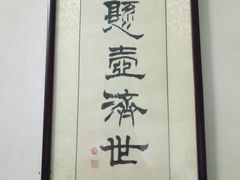 懸壺濟世